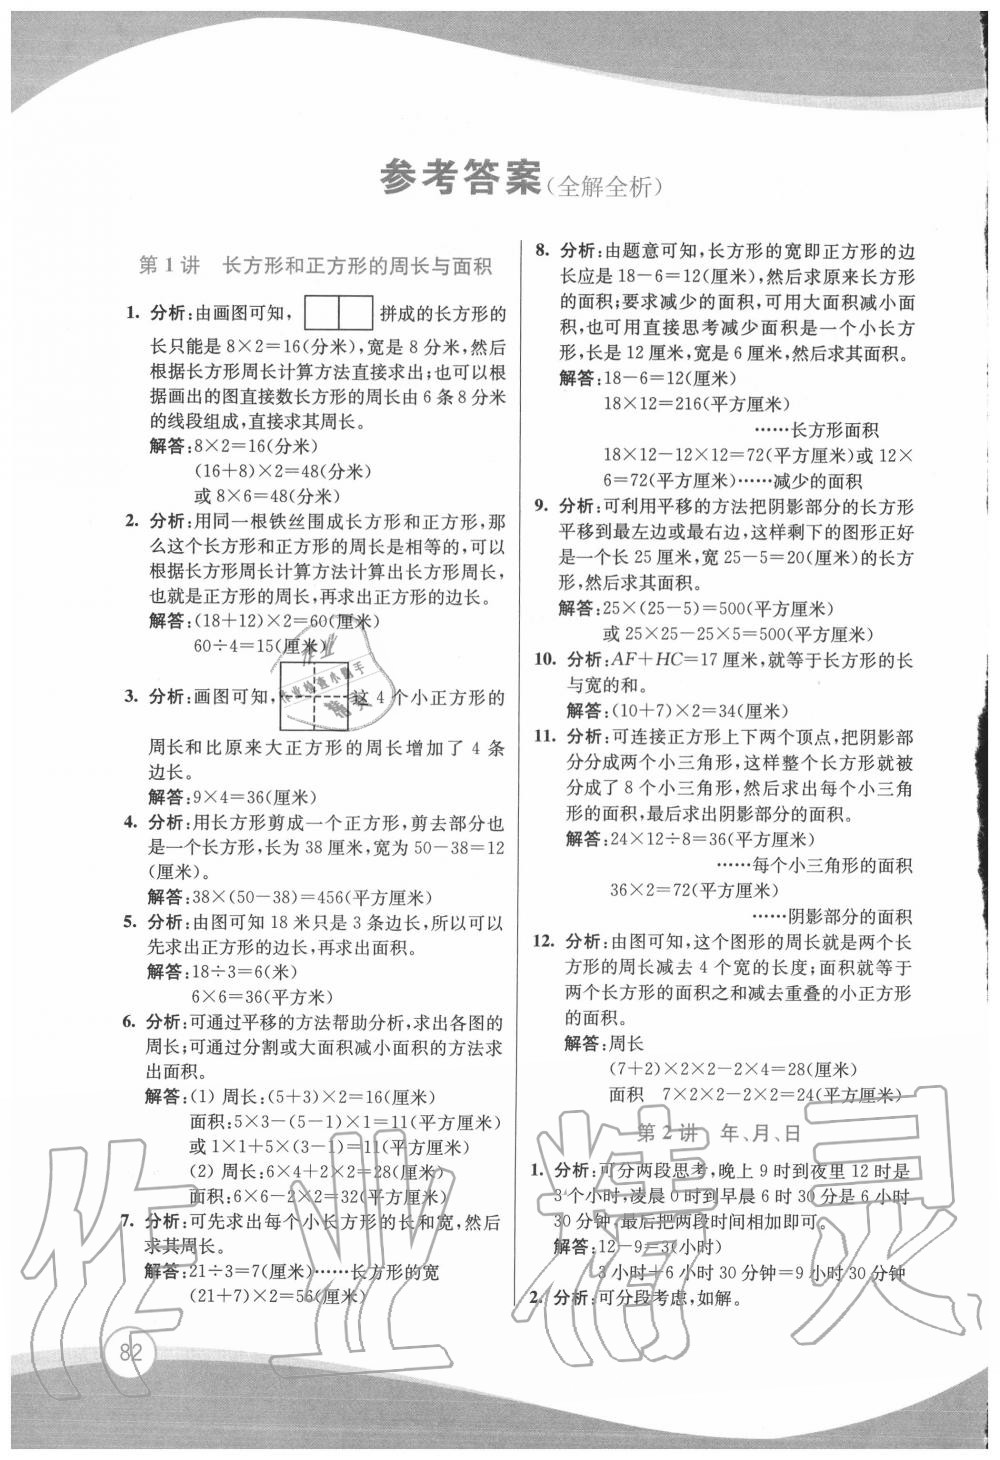 参考答案(全解全析)
第1讲 长方形和正方形的周长与面积
1. 分析:由画图可知, 拼成的长方形的
长只能是8×2=16(分米),宽是8分米,然后
根据长方形周长计算方法直接求出;也可以根
据画出的图直接数长方形的周长由6条8分米
的线段组成,直接求其周长。
解答:8×2=16(分米)
(16+8)×2=48(分米)
或8×6=48(分米)
2. 分析:用同一根铁丝围成长方形和正方形,那
么这个长方形和正方形的周长是相等的,可以
根据长方形周长计算方法计算出长方形周长,
也就是正方形的周长,再求出正方形的边长。
解答:(18+12)×2=60(厘米)
60÷4=15(厘米)
3. 分析:画图可知, 这4个小正方形的
周长和比原来大正方形的周长增加了4条
边长。
解答:9×4=36(厘米)
4. 分析:用长方形剪成一个正方形,剪去部分也
是一个长方形,长为38厘米,宽为50-38=12
(厘米)。
解答:38×(50-38)=456(平方厘米)
5. 分析:由图可知18米只是3条边长,所以可以
先求出正方形的边长,再求出面积。
解答:18÷3=6(米)
6×6=36(平方米)
6. 分析:可通过平移的方法帮助分析,求出各图的
周长;可通过分割或大面积减小面积的方法求
出面积。
解答:(1) 周长:(5+3)×2=16(厘米)
面积:5×3-(5-1)×1=11(平方厘米)
或1×1+5×(3-1)=11(平方厘米)
(2) 周长:6×4+2×2=28(厘米)
面积:6×6-2×2=32(平方厘米)
7. 分析:可先求出每个小长方形的长和宽,然后
求其周长。
解答:21÷3=7(厘米)……长方形的宽
(21+7)×2=56(厘米)
8. 分析:由题意可知,长方形的宽即正方形的边
长应是18-6=12(厘米),然后求原来长方形
的面积;要求减少的面积,可用大面积减小面
积,也可用直接思考减少面积是一个小长方
形,长是12厘米,宽是6厘米,然后求其面积。
解答:18-6=12(厘米)
18×12=216(平方厘米)
……长方形面积
18×12-12×12=72(平方厘米)或12×
6=72(平方厘米)……减少的面积
9. 分析:可利用平移的方法把阴影部分的长方形
平移到最左边或最右边,这样剩下的图形正好
是一个长25厘米,宽25-5=20(厘米)的长方
形,然后求其面积。
解答:25×(25-5)=500(平方厘米)
或25×25-25×5=500(平方厘米)
10. 分析:AF+HC=17厘米,就等于长方形的长
与宽的和。
解答:(10+7)×2=34(厘米)
11. 分析:可连接正方形上下两个顶点,把阴影部
分分成两个小三角形,这样整个长方形就被
分成了8个小三角形,然后求出每个小三角
形的面积,最后求出阴影部分的面积。
解答:24×12÷8=36(平方厘米)
……每个小三角形的面积
36×2=72(平方厘米)
……阴影部分的面积
12. 分析:由图可知,这个图形的周长就是两个长
方形的周长减去4个宽的长度;面积就等于
两个长方形的面积之和减去重叠的小正方形
的面积。
解答:周长
(7+2)×2×2-2×4=28(厘米)
面积 7×2×2-2×2=24(平方厘米)
第2讲 年、月、日
1. 分析:可分两段思考,晚上9时到夜里12时是
3个小时,凌晨0时到早晨6时30分是6小时
30分钟,最后把两段时间相加即可。
解答:12-9=3(小时)
3小时+6小时30分钟=9小时30分钟
2. 分析:可分段考虑,如解。
82
作业精灵
作业
作业检查小助手
精灵